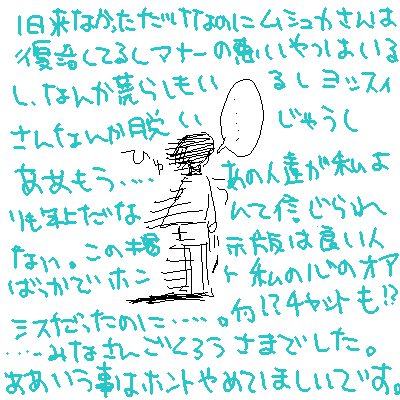 1日来なかっただけなのにムシュカさんは
復活してるしマナーの悪いやつはいる
し、なんか荒らしもいるしヨッスィ
さんなんか脱いじゃうし
……
ひゅう
ああもう....あの人達が私よ
りも年上だなんて信じられ
ない。この掲示版は良い人
ばっかでホント私の心のオア
シスだったのに.....。何!?チャットも!?
....みなさんごくろうさまでした。
ああいう事はホントやめてほしいです。